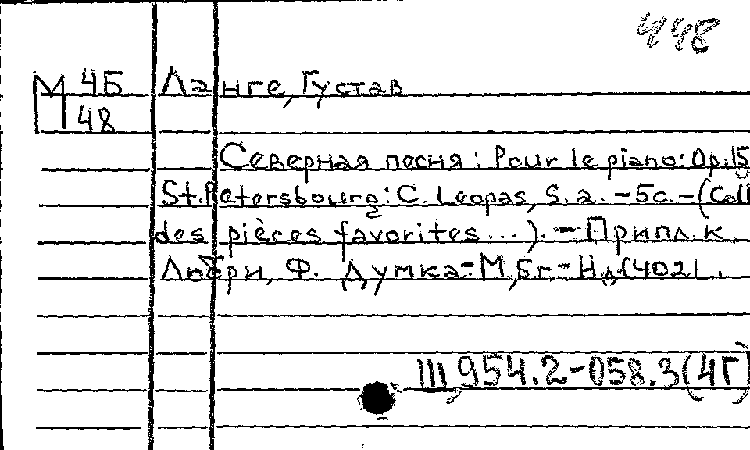 448
М 4Б Ланге, Густав
48
Северная песня: Pour le piano: Op. 15
St. Petersbourg: C. Leopas, S. a. - 5c. - (Coll
des pièces favorites...). - Припл. к
Любри, Ф. Думка - М, Бг. - Н.д. (402).
Ш, 954.2-058.3(4Г)